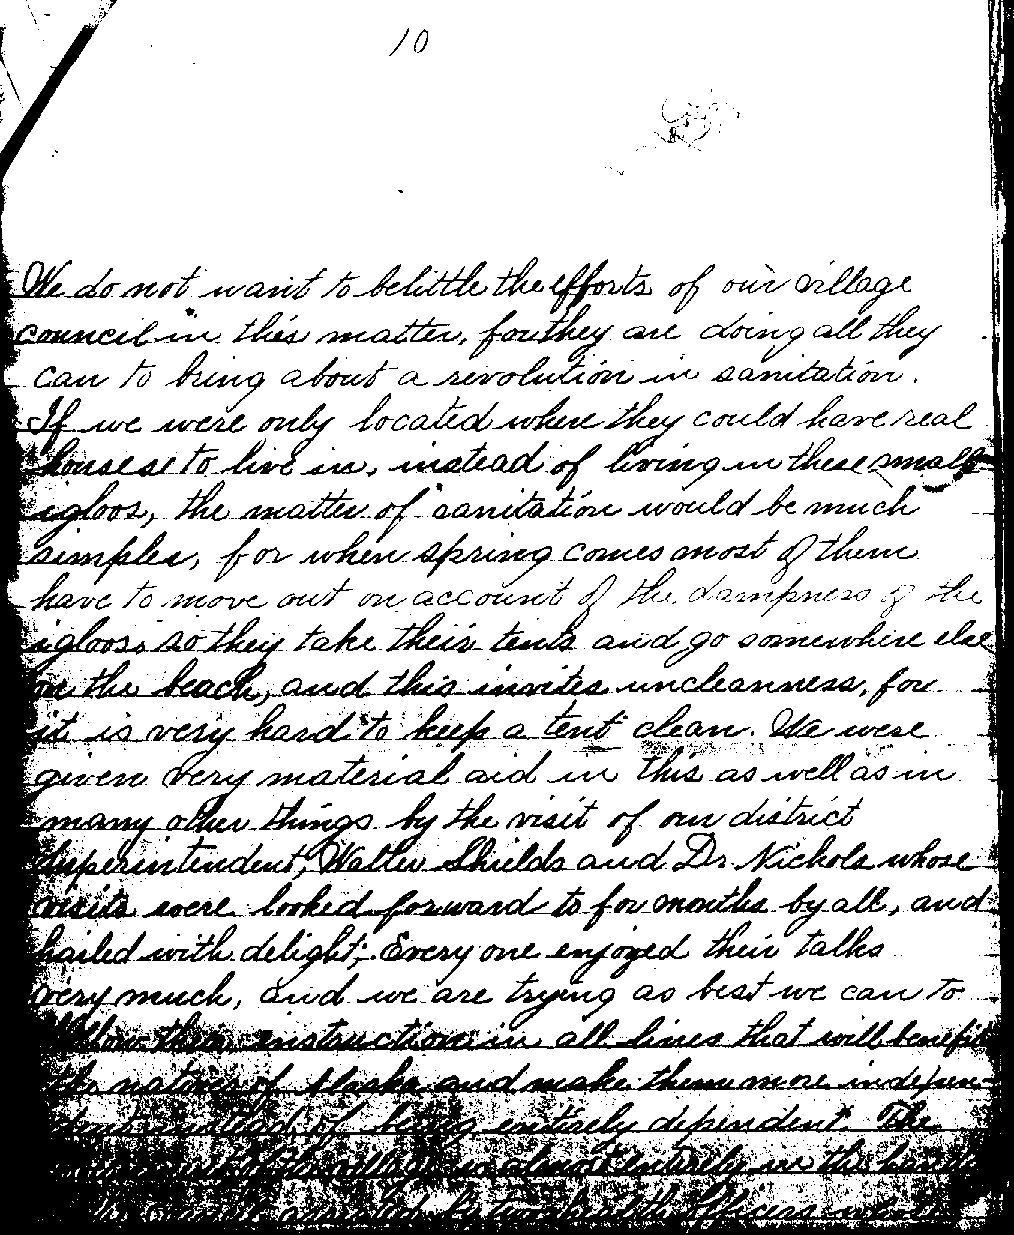 10
We do not want to belittle the efforts of our village
council in this matter, for they are doing all they
can to bring about a revolution in sanitation.
If we were only located where they could have real
houses to live in, instead of living in these small
igloos, the matter of sanitation would be much
simpler, for when spring comes most of them
have to move out on account of the dampness of the
igloos, so they take their tents and go somewhere else
on the beach, and this invites uncleanness, for
it is very hard to keep a tent clean. We were
given very material aid in this as well as in
many other things by the visit of our district
Superintendent, Walter Shields and Dr. Nichols whose
visits were looked forward to for months by all, and
hailed with delight; Every one enjoyed their talks
very much, and we are trying as best we can to
follow their instructions in all lines that will benefit
the natives of Alaska and make them more indepen-
dent instead of being entirely dependent. The
of the village is almost entirely in the hands
assisted by two health officers